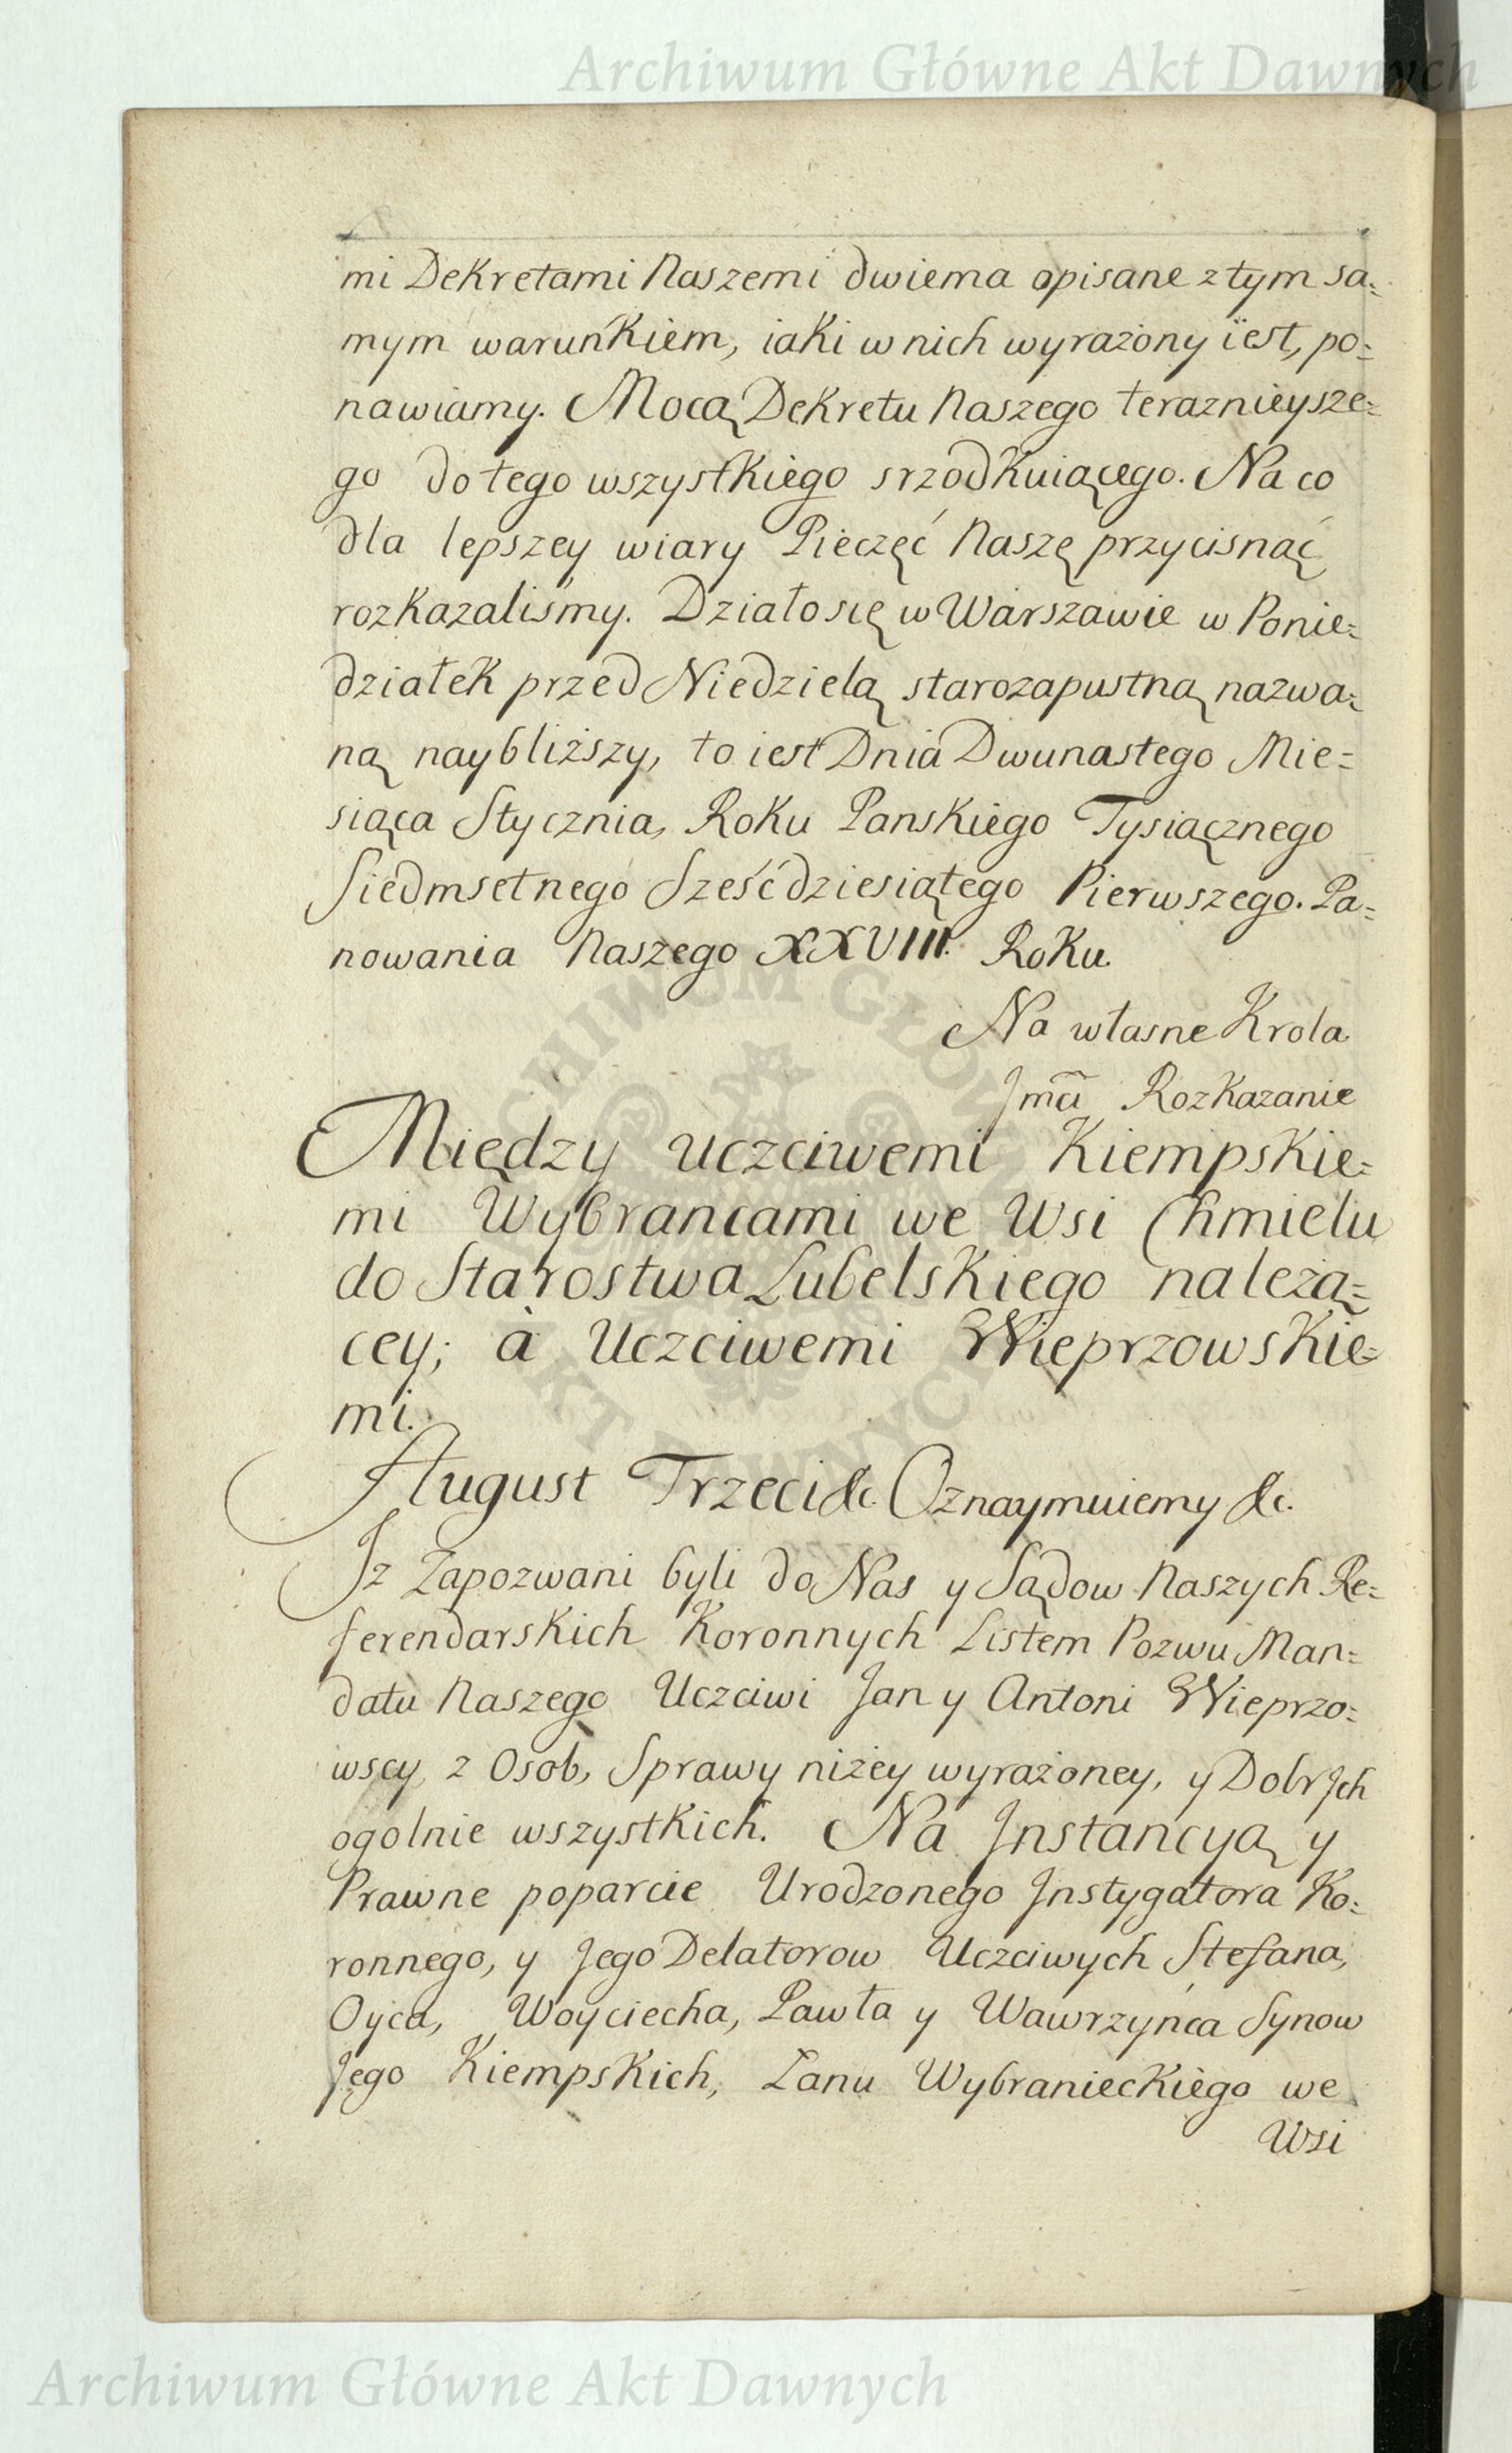 Archiwum Główne Akt Dawnych
mi Dekretami Naszemi dwiema opisane z tym sa=
mym warunkiem, iaki w nich wyrażony iest, po=
nawiamy. Mocą Dekretu Naszego teraznieysze=
go do tego wszystkiego srzodkuiącego. Na co
dla lepszey wiary Pieczęć Naszę przycisnąć
rozkazaliśmy. Działo się w Warszawie w Ponie=
działek przed Niedzielą starozapustną nazwa=
ną naybliższy, to iest Dnia Dwunastego Mie=
siąca Stycznia, Roku Panskiego Tysiącznego
Siedmsetnego Sześćdziesiątego Pierwszego. Pa=
nowania Naszego XXVIII. Roku.
Na własne Krola
Jmći Rozkazanie
Między uczciwemi Kiempskie=
mi Wybrancami we Wsi Chmielu
do Starostwa Lubelskiego należą=
cey; à Uczciwemi Wieprzowskie=
mi.
August Trzeci &c. Oznaymuiemy &c.
Jz Zapozwani byli do Nas y Sądow Naszych Re=
ferendarskich Koronnych Listem Pozwu Man=
datu Naszego Uczciwi Jan y Antoni Wieprzo=
wscy z Osob, Sprawy niżey wyrażoney, y Dobr Jch
ogolnie wszystkich. Na Jnstancyą y
Prawne poparcie Urodzonego Jnstygatora Ko=
ronnego, y Jego Delatorow Uczciwych Stefana,
Oyca, Woyciecha, Pawła y Wawrzyńca Synow
Jego Kiempskich, Łanu Wybranieckiego we
Wsi
ARCHIWUM GŁÓWNE AKT DAWNYCH
Archiwum Główne Akt Dawnych